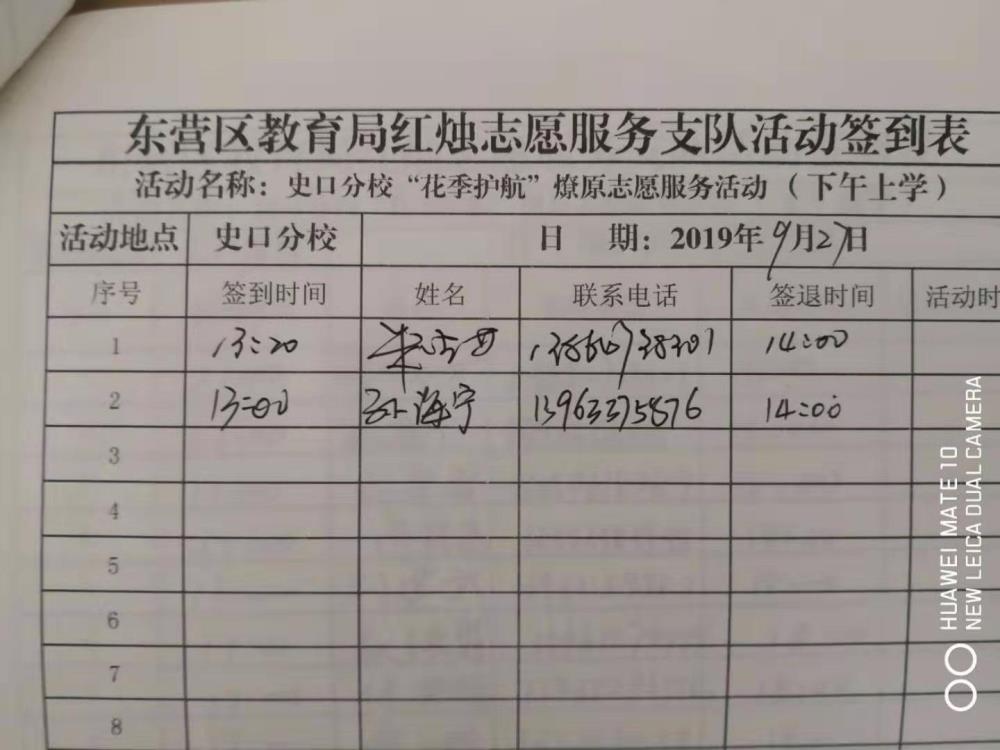 东营区教育局红烛志愿服务支队活动签到表
活动名称：史口分校“花季护航”燎原志愿服务活动（下午上学）
活动地点 史口分校 日 期：2019年9月27日
序号 签到时间 姓名 联系电话 签退时间 活动时
1 13:20 14:00
2 13:00 孙海宁 13963375876 14:00
3
4
5
6
7
8
HUAWEI MATE 10
NEW LEICA DUAL CAMERA